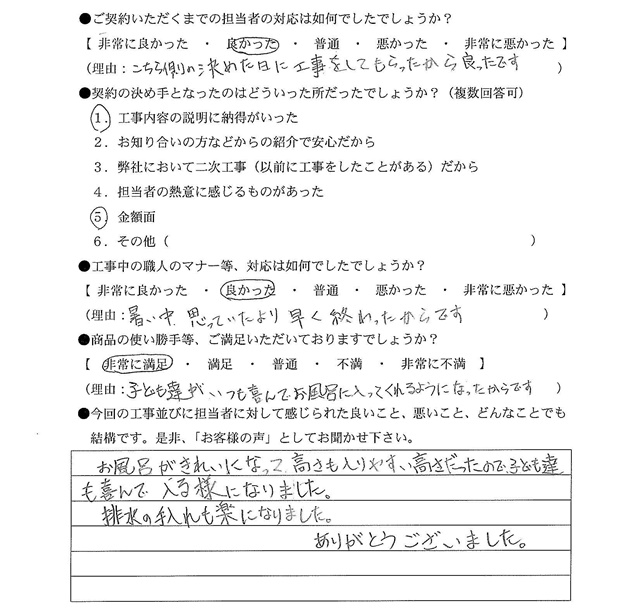 ●ご契約いただくまでの担当者の対応は如何でしたでしょうか？
【 非常に良かった ・ 良かった ・ 普通 ・ 悪かった ・ 非常に悪かった 】
(理由：こちら側の決めた日に工事をしてもらったから良ったです )
●契約の決め手となったのはどういった所だったでしょうか？（複数回答可）
1．工事内容の説明に納得がいった
2．お知り合いの方などからの紹介で安心だから
3．弊社において二次工事（以前に工事をしたことがある）だから
4．担当者の熱意に感じるものがあった
5．金額面
6．その他（ ）
●工事中の職人のマナー等、対応は如何でしたでしょうか？
【 非常に良かった ・ 良かった ・ 普通 ・ 悪かった ・ 非常に悪かった 】
(理由：暑い中、思っていたより早く終わったからです )
●商品の使い勝手等、ご満足いただいておりますでしょうか？
【 非常に満足 ・ 満足 ・ 普通 ・ 不満 ・ 非常に不満 】
(理由：子ども達が いつも喜んでお風呂に入ってくれるようになったからです )
●今回の工事並びに担当者に対して感じられた良いこと、悪いこと、どんなことでも
結構です。是非、「お客様の声」としてお聞かせ下さい。
お風呂がきれいになって、高さも入りやすい高さだったので、子ども達
も喜んで 入る様になりました。
排水の手入れも楽になりました。
ありがとうございました。